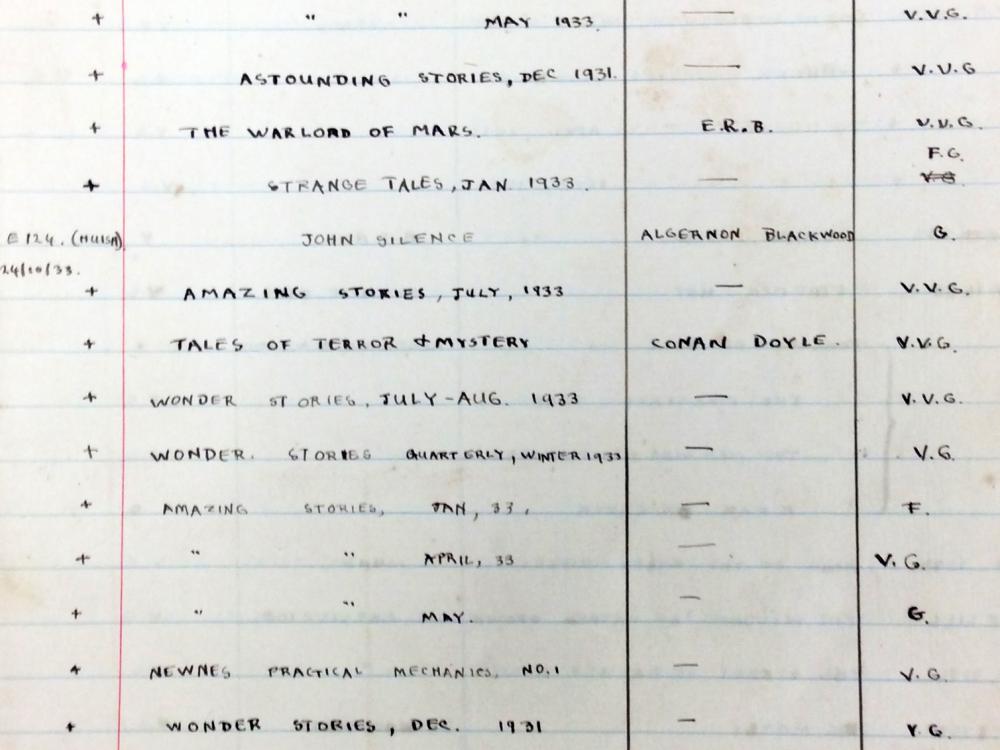 + " " MAY 1933. — V.V.G.
+ ASTOUNDING STORIES, DEC 1931. — V.V.G
+ THE WARLORD OF MARS. E.R.B. V.V.G.
F.G.
+ STRANGE TALES, JAN. 1933. — V.G.
E 124. (HUISH) JOHN SILENCE ALGERNON BLACKWOOD G.
24/10/33.
+ AMAZING STORIES, JULY, 1933 — V.V.G.
+ TALES OF TERROR & MYSTERY CONAN DOYLE. V.V.G.
+ WONDER STORIES, JULY-AUG. 1933 — V.V.G.
+ WONDER. STORIES QUARTERLY, WINTER 1933 — V.G.
+ AMAZING STORIES, JAN, 33, — F.
+ " " APRIL, 33 — V.G.
+ " " MAY. — G.
+ NEWNES PRACTICAL MECHANICS, NO.1 — V.G.
+ WONDER STORIES, DEC. 1931 — V.G.